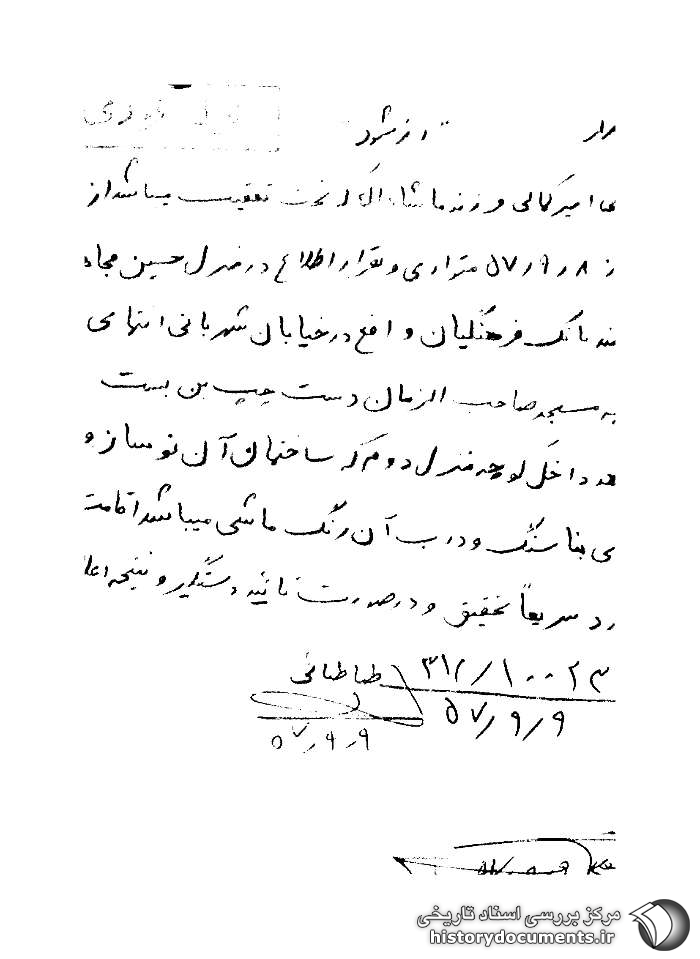 خیلی فوری
از مشهد
علی امیر کمالی فرزند ماشاءاله که تحت تعقیب میباشد از
۵۷/۹/۸ متواری و بقرار اطلاع در منزل حسین
بانک فرهنگیان واقع در خیابان شهربانی انتهای
به مسجد صاحب الزمان دست چپ بن بست
داخل کوچه منزل دوم که ساختمان آن نوساز و
بنا سنگ و درب آن رنگ ماشی میباشد اقامت
سریعاً تحقیق و در صورت تائید دستگیر و نتیجه
۳۱۲/۱۰۰۲۳ طباطبائی
۵۷/۹/۹
۵۷/۹/۹
مرکز بررسی اسناد تاریخی
historydocuments.ir